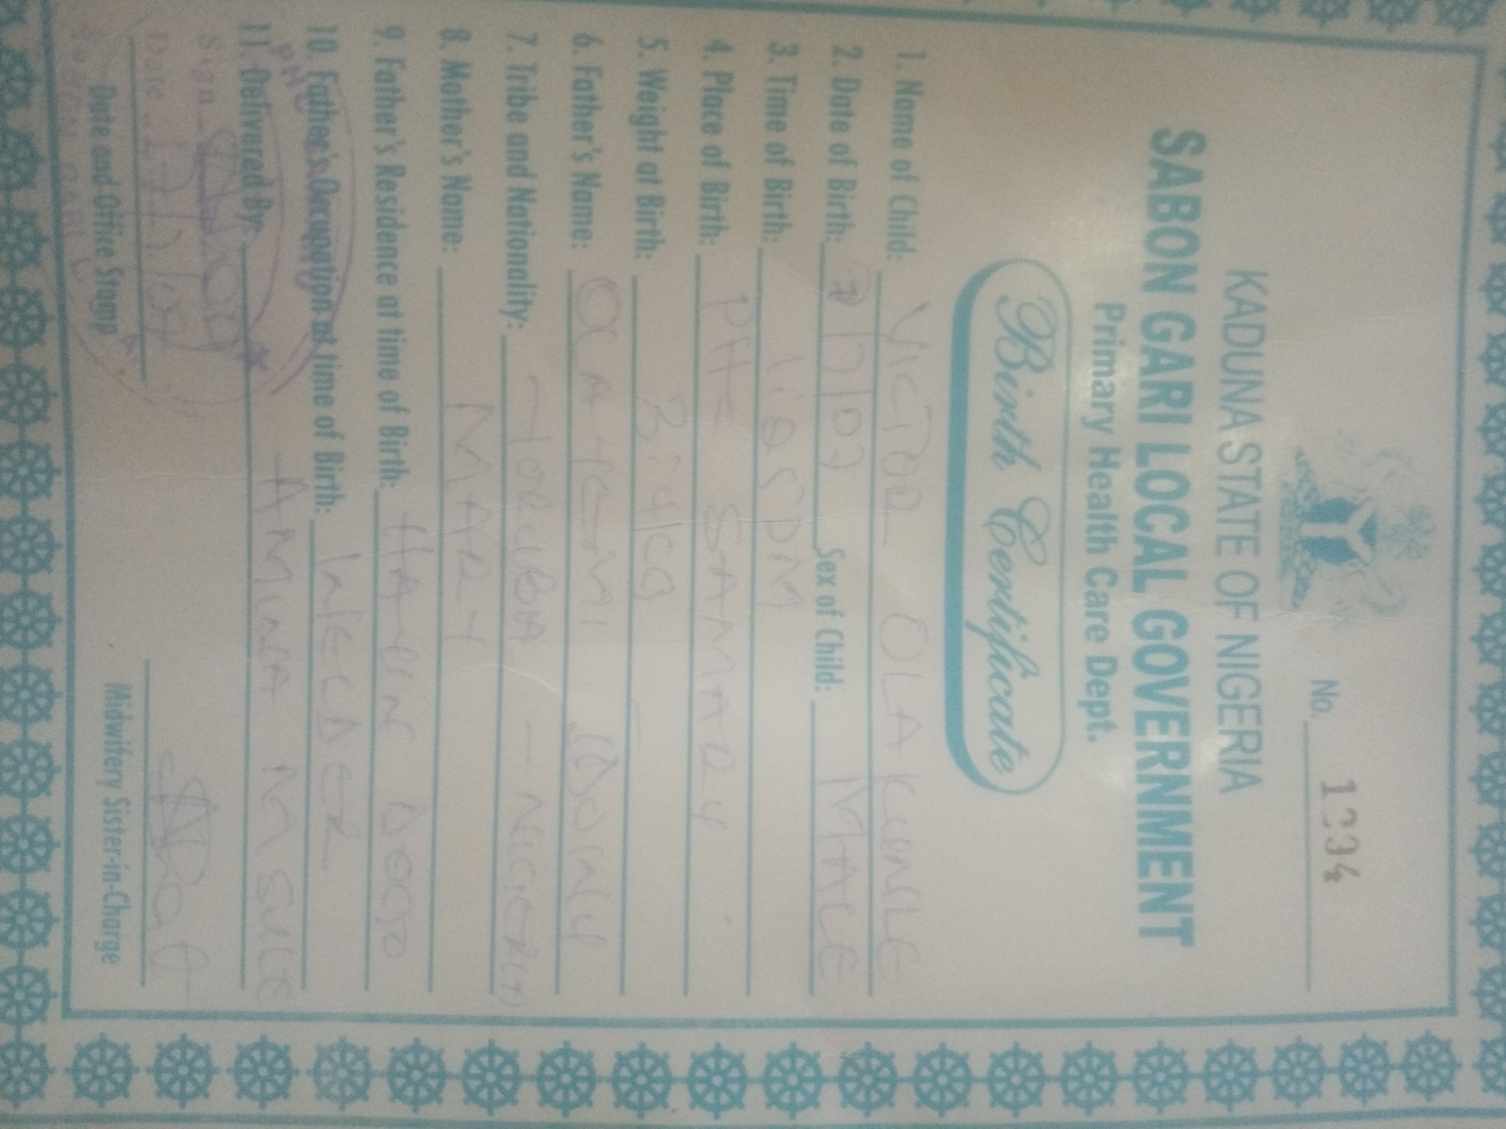 No. 1334
KADUNA STATE OF NIGERIA
SABON GARI LOCAL GOVERNMENT
Primary Health Care Dept.
Birth Certificate
1. Name of Child: VICTOR OLAKUNLE
2. Date of Birth: Sex of Child: MALE
3. Time of Birth:
4. Place of Birth: SAMARU
5. Weight at Birth:
6. Father's Name: IDOWU
7. Tribe and Nationality: YORUBA -
8. Mother's Name: MARY
9. Father's Residence at time of Birth: HAYIN DOGO
10. Father's Occupation at time of Birth: WELDER
11. Delivered By: AMINA M SULE
Sign
Date
Date and Office Stamp
Midwifery Sister-in-Charge